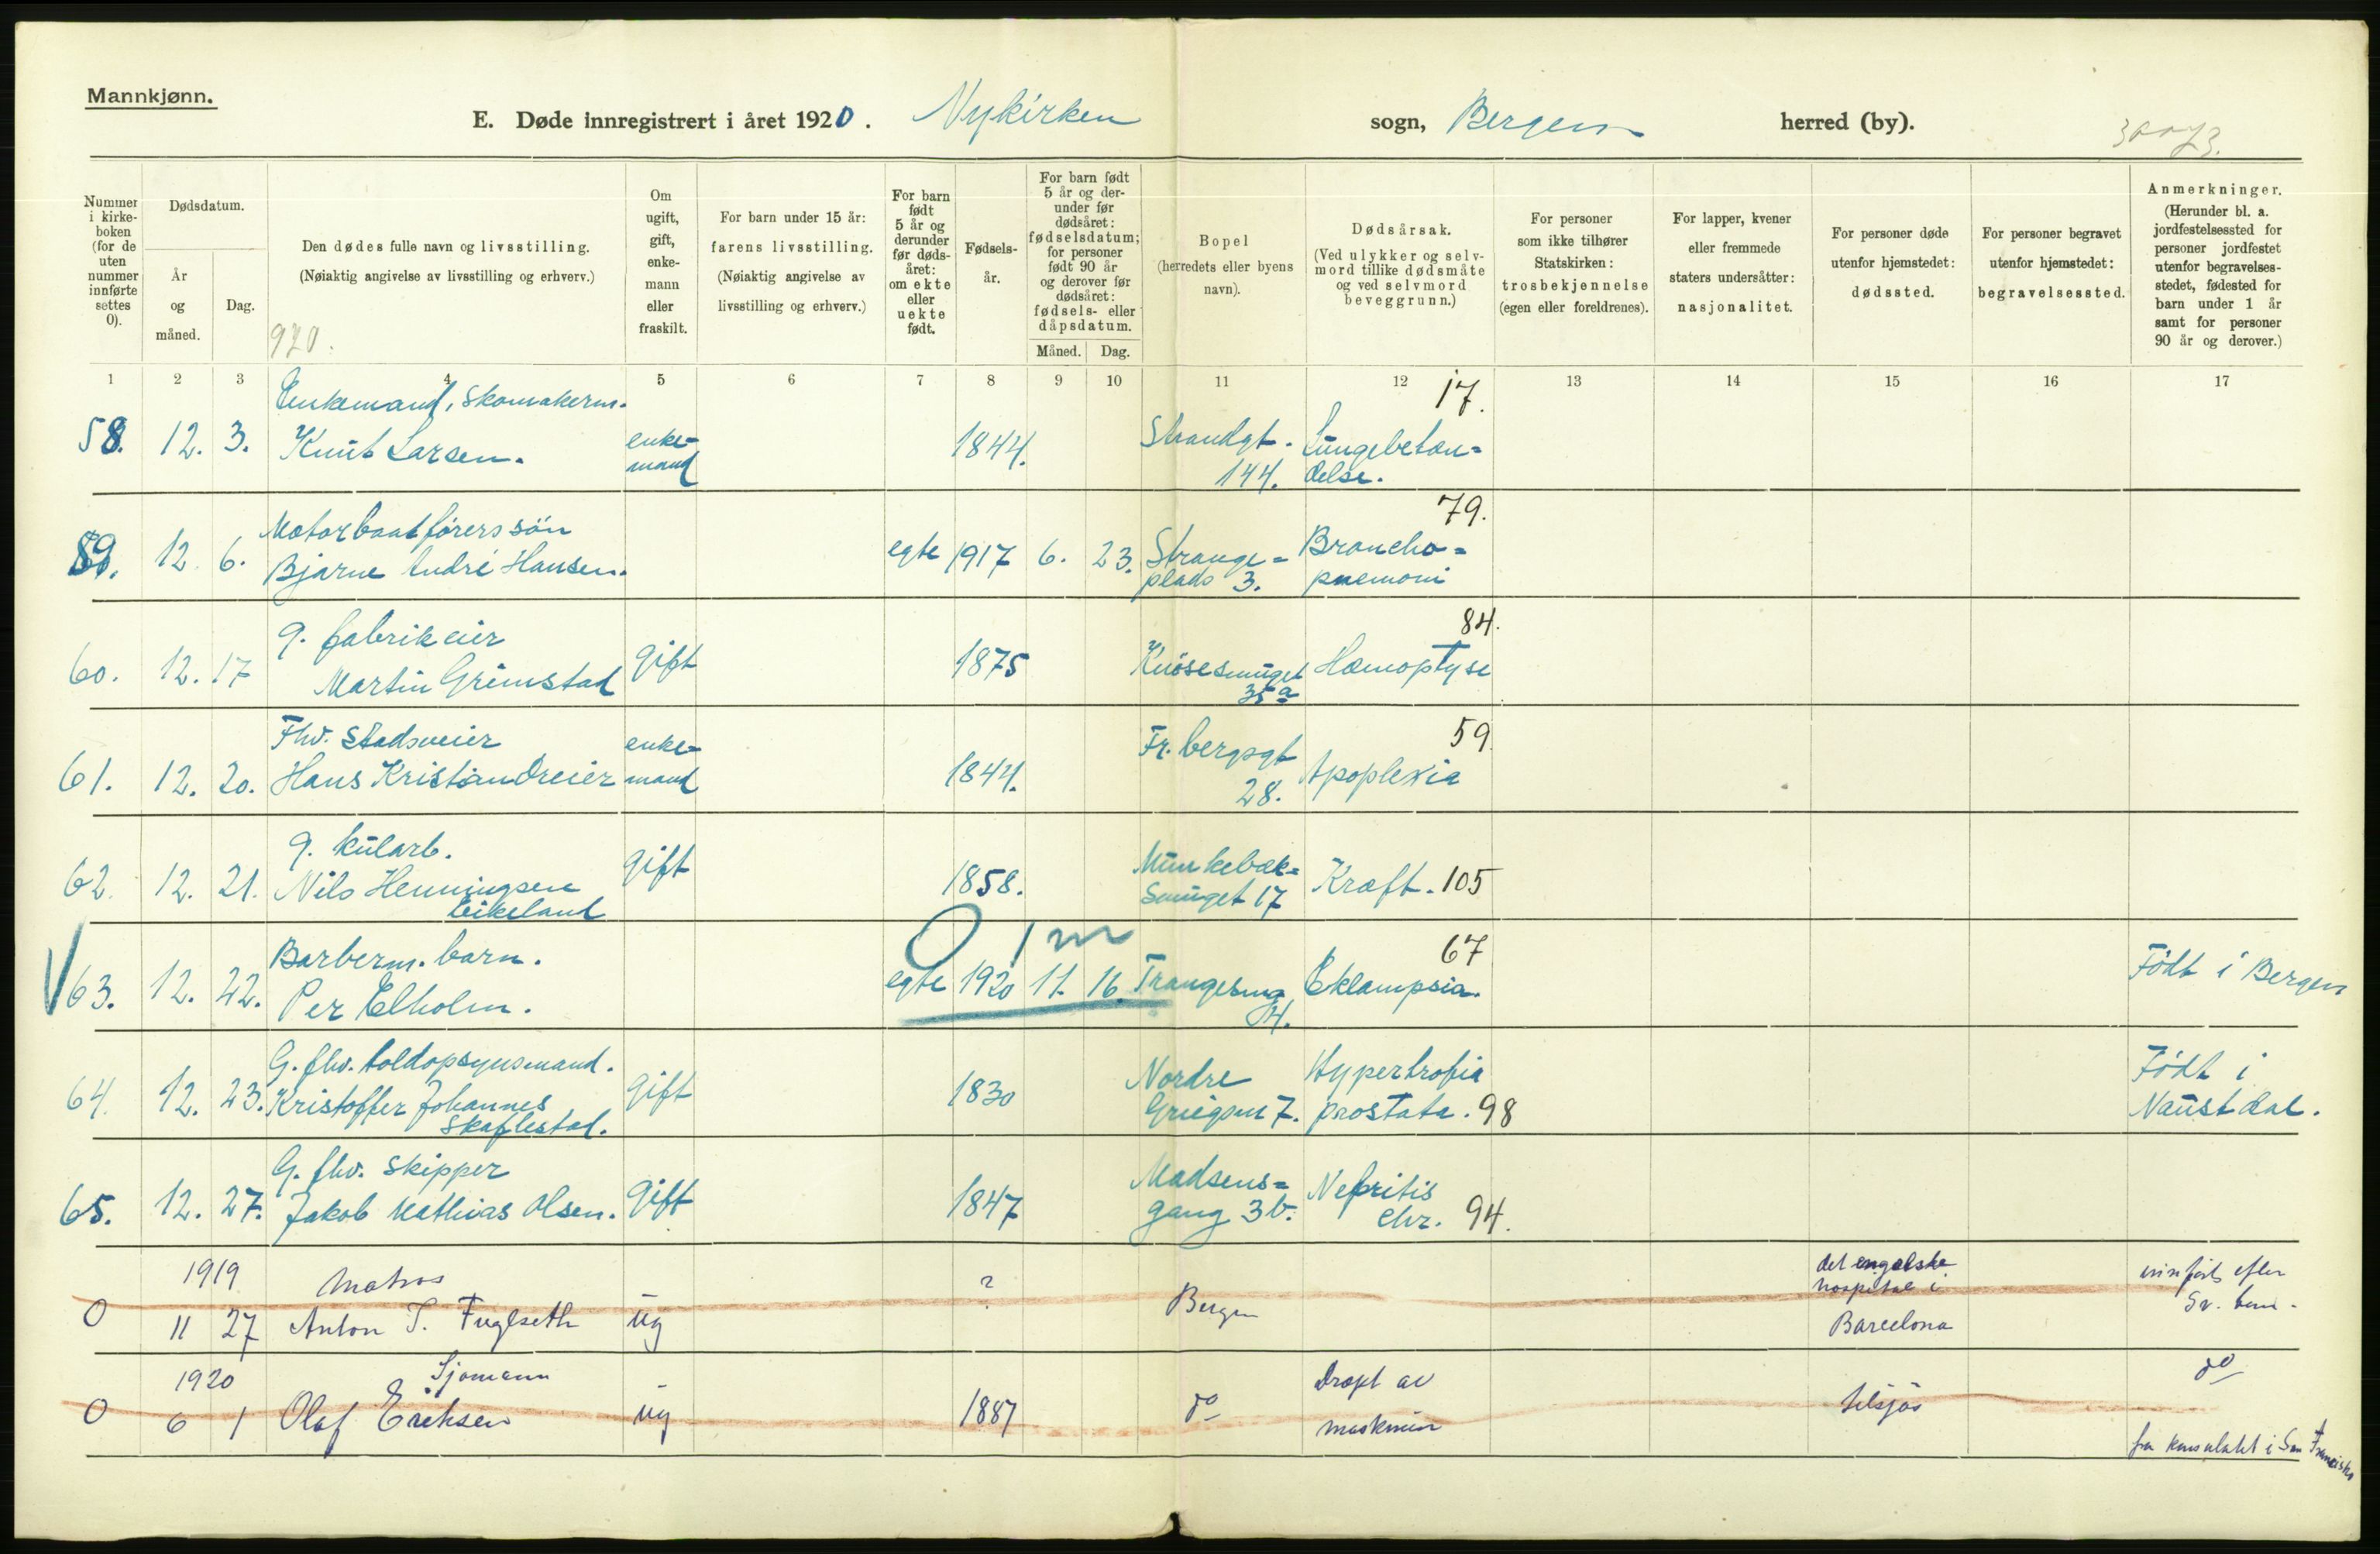 Mannkjønn.
E. Døde innregistrert i året 1920. Nykirken sogn, Bergen herred (by).
Nummer i kirkeboken (for de uten nummer innførte settes 0).
Dødsdatum.
År og måned.
Dag.
Den dødes fulle navn og livsstilling.
(Nøiaktig angivelse av livsstilling og erhverv.)
920.
Om ugift, gift, enkemann eller fraskilt.
For barn under 15 år: farens livsstilling.
(Nøiaktig angivelse av livsstilling og erhverv.)
For barn født 5 år og derunder før dødsåret: om ekte eller uekte født.
Fødselsår.
For barn født 5 år og derunder før dødsåret: fødselsdatum; for personer født 90 år og derover før dødsåret: fødsels- eller dåpsdatum.
Måned. Dag.
Bopel (herredets eller byens navn).
Dødsårsak.
(Ved ulykker og selvmord tillike dødsmåte og ved selvmord beveggrunn.)
For personer som ikke tilhører Statskirken: trosbekjennelse (egen eller foreldrenes).
For lapper, kvener eller fremmede staters undersåtter: nasjonalitet.
For personer døde utenfor hjemstedet: dødssted.
For personer begravet utenfor hjemstedet: begravelsessted.
Anmerkninger.
(Herunder bl. a. jordfestelsessted for personer jordfestet utenfor begravelsesstedet, fødested for barn under 1 år samt for personer 90 år og derover.)
1 2 3 4 5 6 7 8 9 10 11 12 13 14 15 16 17
Enkemand, Skomakerm. 17.
58. 12. 3. Knut Larsen. enke=mand 1844. Strandgt. 144. Lungebetæn=delse.
Motorbaatførers søn 79.
59. 12. 6. Bjarne André Hansen. egte 1917 6. 23. Strange=plads 3. Broncho=pnemoni
g. fabrikeier 84.
60. 12. 17 Martin Grimstad gift 1875 Knøsesmuget 35a Hæmoptyse
Fhv. Stadsveier 59
61. 12. 20. Hans Kristian Dreier enke=mand 1844. Fr. bergsgt 28. Apoplexia
g. kularb.
62. 12. 21. Nils Henningsen Eikeland gift 1858. Munkebæk=smuget 17 Kræft. 105
Barberm. barn. 0 1 m 67
63. 12. 22. Per Elholm. egte 1920 11. 16. Trangesmg 14. Eklampsia. Født i Bergen
G. fhv. toldopsynsmand.
64. 12. 23. Kristoffer Johannes Skaflestad. gift 1830 Nordre Griegsm 7. Hypertrofia prostata. 98 Født i Naustdal.
G. fhv. Skipper
65. 12. 27. Jakob Mathias Olsen. gift 1847 Madsens=gang 3b. Nefritis chr. 94.
1919 Matros ?
0 11 27 Anton T. Fuglseth ug Bergen det engelske hospital i Barcelona innført efter
1920 Sjømann
0 6 1 Olaf Eriksen ug 1887 do Dræpt av maskinen tilsjøs do
fra konsulatet i San Francisko